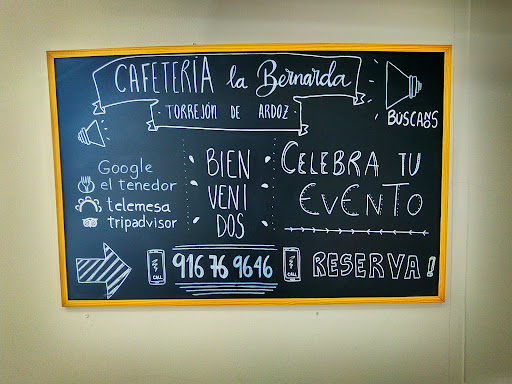 CAFETERÍA la Bernarda
- TORREJÓN DE ARDOZ -
BÚSCANOS
Google
el tenedor
telemesa
tripadvisor
BIEN
VENI
DOS
CELEBRA TU
EVENTO
CALL
916 76 9646
CALL
RESERVA!